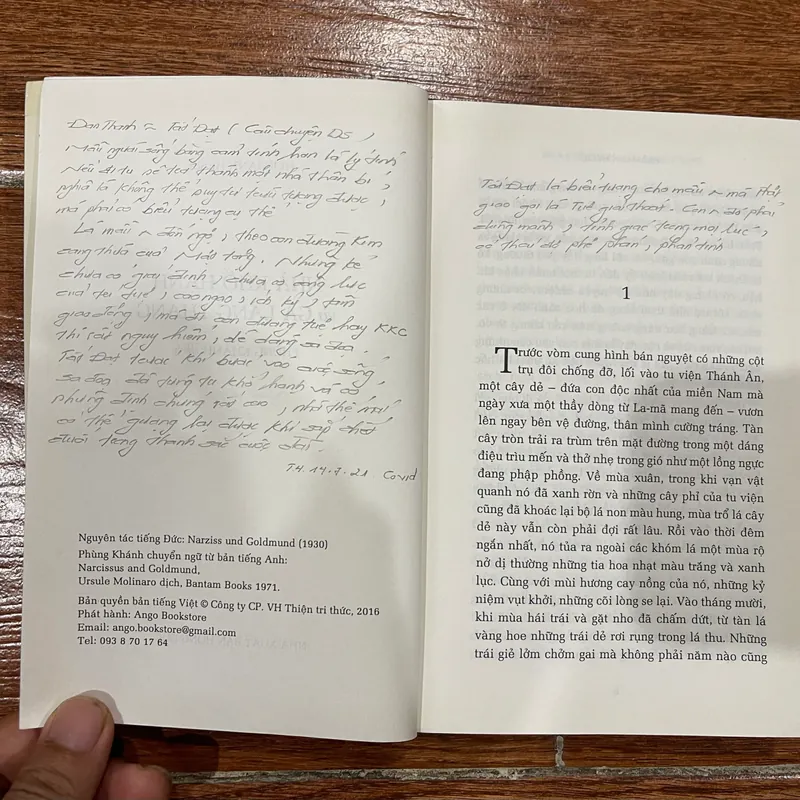 Đan Thanh ~ Tất Đạt ( Câu chuyện DS ,
Mẫu người sống bằng cảm tính hơn là lý tính
Nếu đi tu sẽ trở thành một nhà thần bí ,
nghĩa là không thể suy tư trừu tượng được ,
mà phải có biểu tượng cụ thể
Là mẫu ~ đốn ngộ , theo con đường Kim
cang thừa của Mật tông . Nhưng kẻ
chưa có gia đình , chưa có năng lực
của trí tuệ , cao ngạo , ích kỷ , tâm
giao động , mà đi con đường tuệ hay KKC
thì rất nguy hiểm , dễ dàng sa đọa .
Tất Đạt trước khi bước vào cuộc sống
sa đoạ đã từng tu khổ hạnh và có
những định chứng rất cao , như thế mới
có thể gượng lại được khi sắp chết
đuối trong thanh sắc cuộc đời .
T4. 14.7.21 Covid
Nguyên tác tiếng Đức: Narziss und Goldmund (1930)
Phùng Khánh chuyển ngữ từ bản tiếng Anh:
Narcissus and Goldmund,
Ursule Molinaro dịch, Bantam Books 1971.
Bản quyền bản tiếng Việt © Công ty CP. VH Thiện tri thức, 2016
Phát hành: Ango Bookstore
Email: ango.bookstore@gmail.com
Tel: 093 8 70 17 64
Tất Đạt là biểu tượng cho mẫu ~ mà Phật
giáo gọi là Tuệ giải thoát . Con ~ đó phải
dũng mãnh , tỉnh giác trong mọi lúc ,
có thái độ phê phán , phản tỉnh
1
Trước vòm cung hình bán nguyệt có những cột
trụ đôi chống đỡ, lối vào tu viện Thánh Ân,
một cây dẻ – đứa con độc nhất của miền Nam mà
ngày xưa một thầy dòng từ La-mã mang đến – vươn
lên ngay bên vệ đường, thân mình cường tráng. Tàn
cây tròn trải ra trùm trên mặt đường trong một dáng
điệu trìu mến và thở nhẹ trong gió như một lồng ngực
đang phập phồng. Về mùa xuân, trong khi vạn vật
quanh nó đã xanh rờn và những cây phỉ của tu viện
cũng đã khoác lại bộ lá non màu hung, mùa trổ lá cây
dẻ này vẫn còn phải đợi rất lâu. Rồi vào thời đêm
ngắn nhất, nó tủa ra ngoài các khóm lá một mùa rộ
nở dị thường những tia hoa nhạt màu trắng và xanh
lục. Cùng với mùi hương cay nồng của nó, những kỷ
niệm vụt khởi, những cõi lòng se lại. Vào tháng mười,
khi mùa hái trái và gặt nho đã chấm dứt, từ tàn lá
vàng hoe những trái dẻ rơi rụng trong lá thu. Những
trái giẻ lởm chởm gai mà không phải năm nào cũng